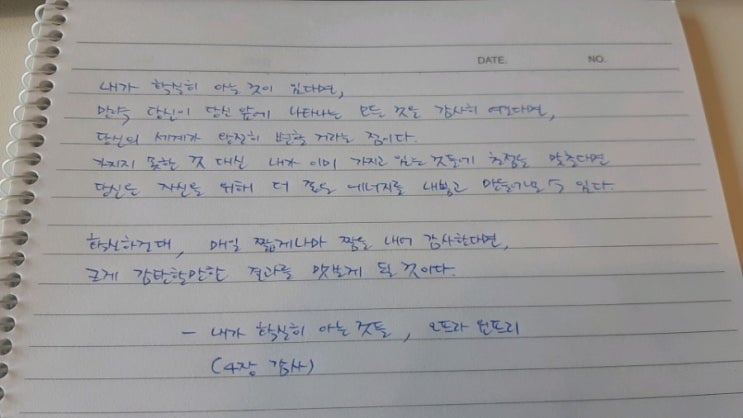 DATE. NO.
내가 확실히 아는 것이 있다면,
만약 당신이 당신 앞에 나타나는 모든 것을 감사히 여긴다면,
당신의 세계가 완전히 변할 거라는 점이다.
가지지 못한 것 대신 내가 이미 가지고 있는 것들에 초점을 맞춘다면
당신은 자신을 위해 더 좋은 에너지를 내뿜고 만들어낼 수 있다.
확실하건대, 매일 짧게나마 짬을 내어 감사한다면,
크게 감탄할만한 결과를 맛보게 될 것이다.
- 내가 확실히 아는 것들, 오프라 윈프리
(4장 감사)